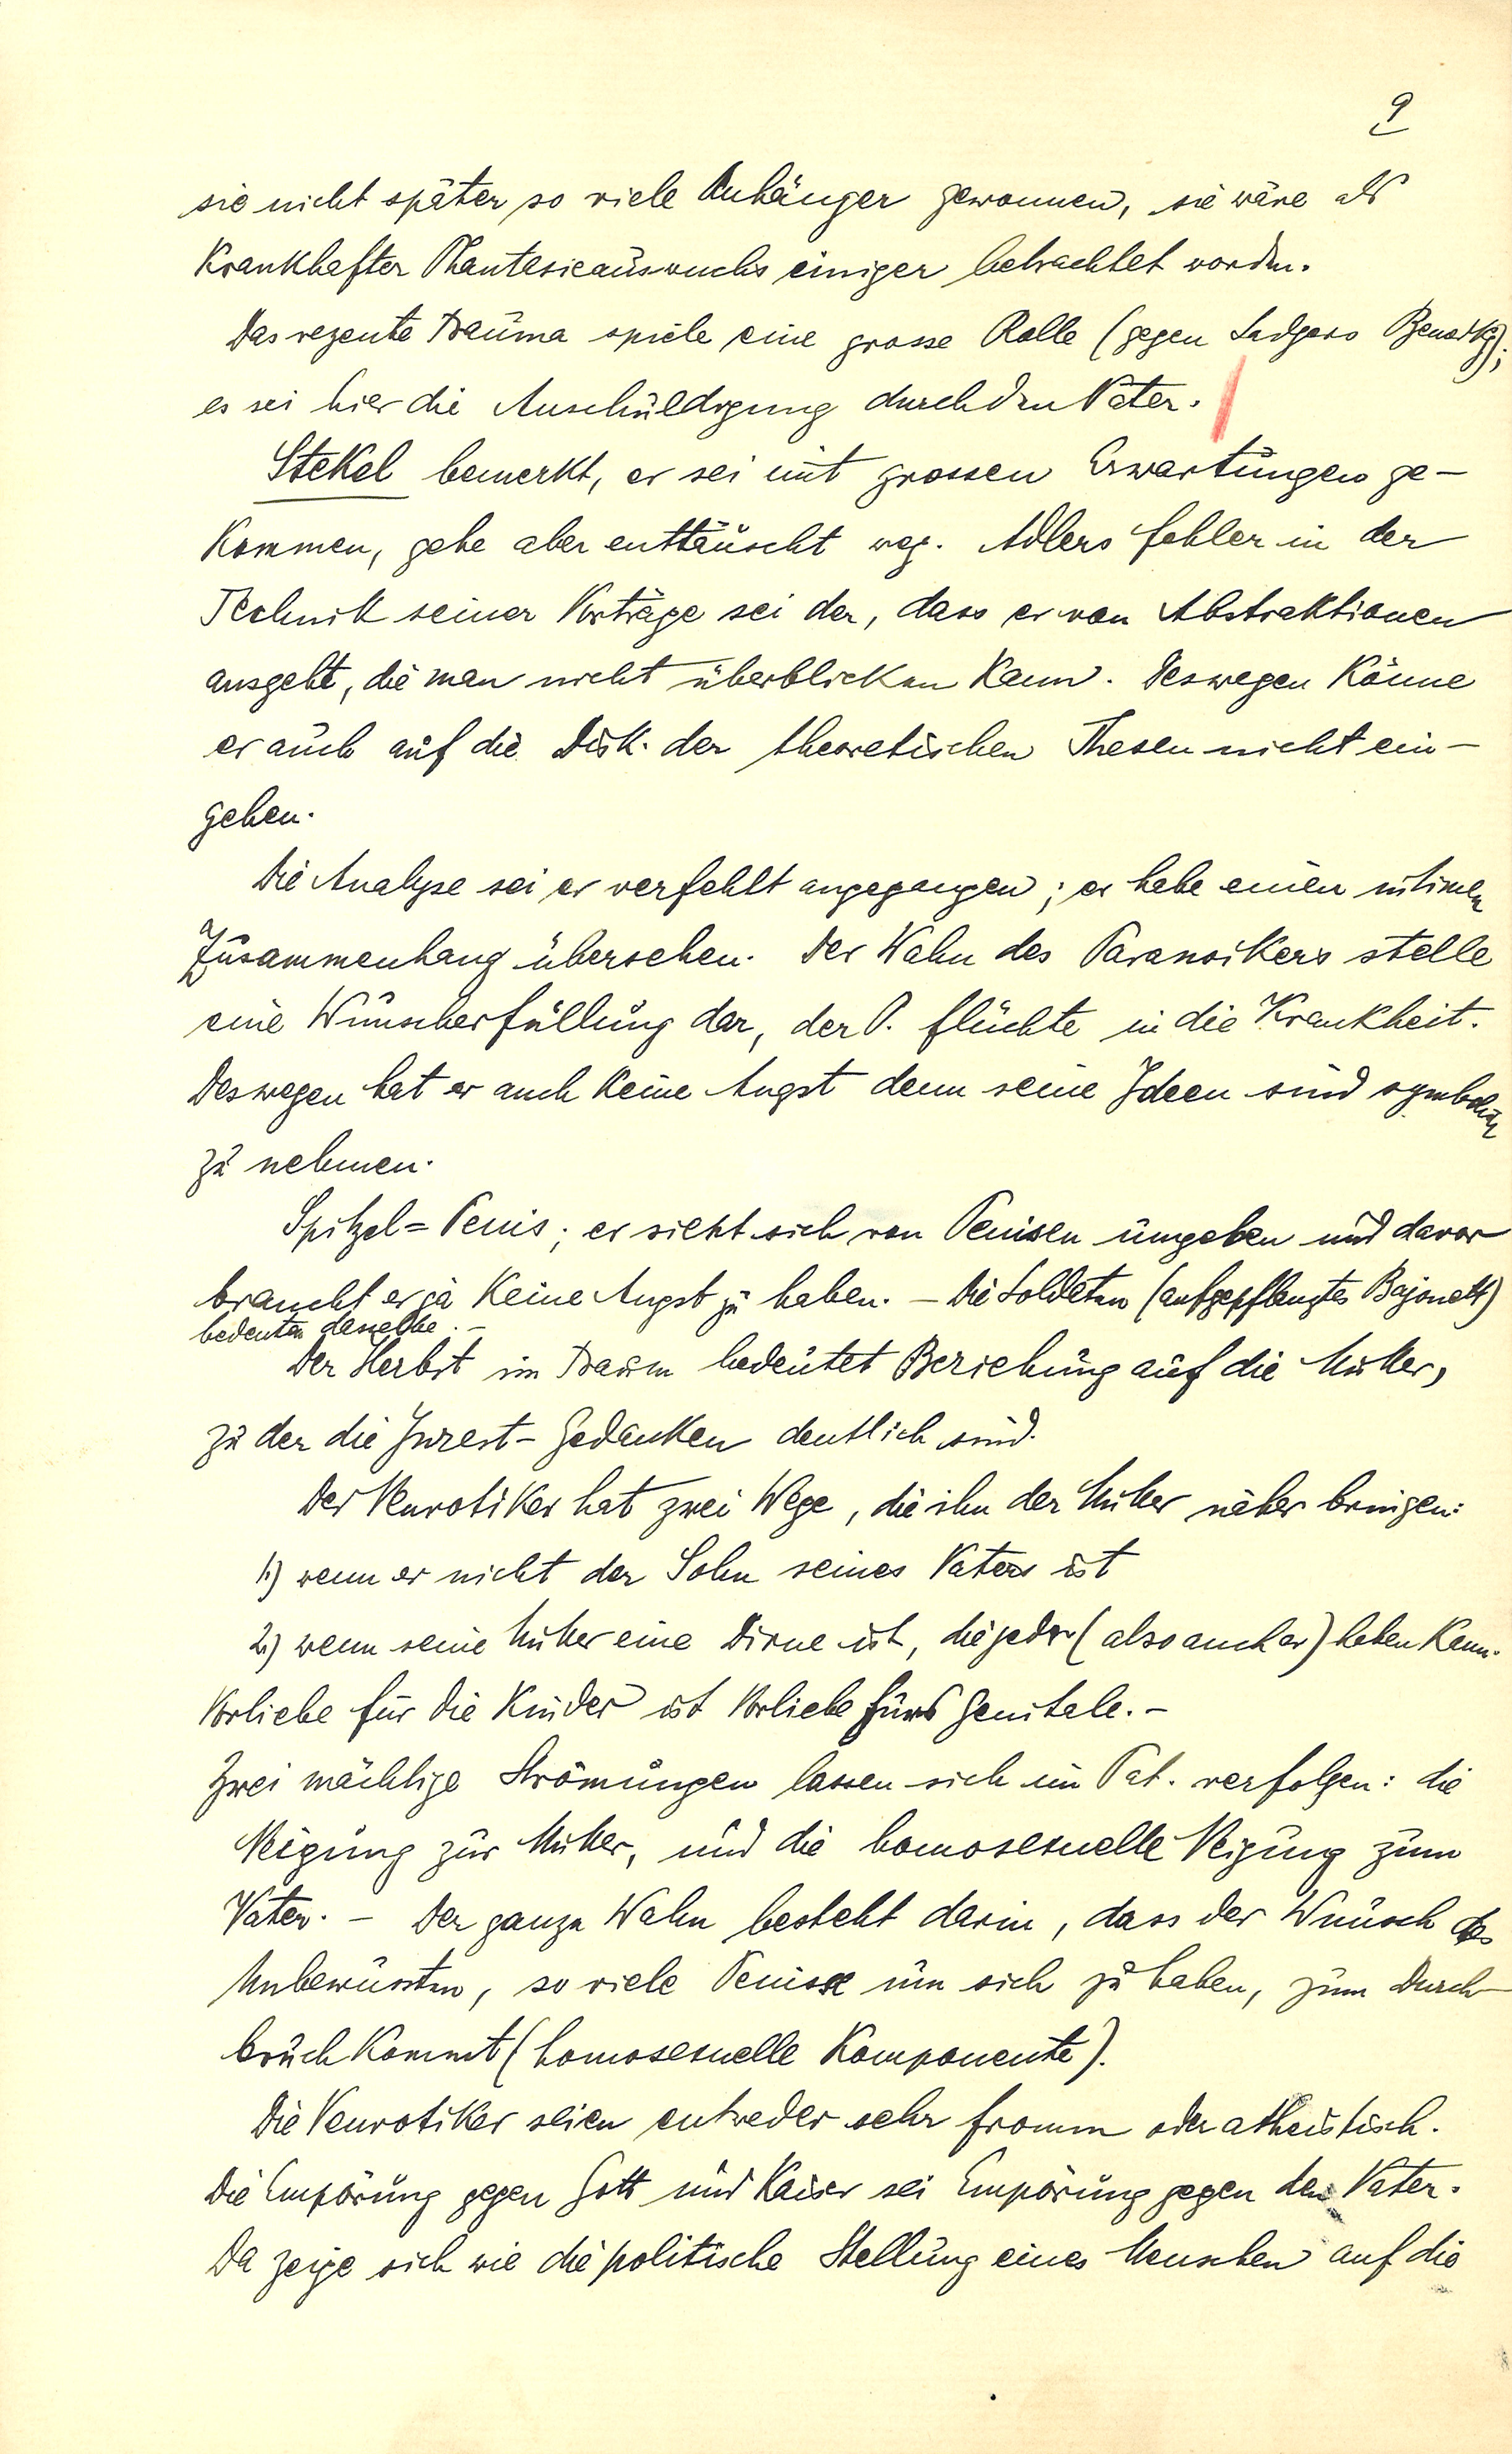 9
sie nicht später so viele Anhänger gewonnen, sie wäre als
Krankhafter Phantasieauswuchs einiger betrachtet worden.
Das rezente Trauma spiele eine grosse Rolle (gegen Sadgers Bemerkg);
es sei hier die Anschuldigung durch den Vater.
Stekel bemerkt, er sei mit grossen Erwartungen ge-
kommen, gehe aber enttäuscht weg. Adlers Fehler in der
Technik seiner Vorträge sei der, dass er von Abstraktionen
ausgeht, die man nicht überblicken kann. Deswegen könne
er auch auf die Disk. der theoretischen Thesen nicht ein-
gehen.
Die Analyse sei er verfehlt angegangen; er habe einen intimen
Zusammenhang übersehen. Der Wahn des Paranoikers stelle
eine Wunscherfüllung dar, der P. flüchte in die Krankheit.
Deswegen hat er auch keine Angst denn seine Ideen sind symbolisch
zu nehmen.
Spitzel = Penis; er sieht sich von Penisen umgeben und davor
braucht er ja keine Angst zu haben. - Die Soldaten (aufgepflanztes Bajonett)
bedeuten dasselbe. -
Der Herbst im Traum bedeutet Beziehung auf die Mutter,
zu der die Inzest-Gedanken deutlich sind.
Der Neurotiker hat zwei Wege, die ihn der Mutter näher bringen:
1.) wenn er nicht der Sohn seines Vaters ist
2.) wenn seine Mutter eine Dirne ist, die jeder (also auch er) haben kann.
Vorliebe für die Kinder ist Vorliebe fürs Genitale. -
Zwei mächtige Strömungen lassen sich im Pat. verfolgen: die
Neigung zur Mutter, und die homosexuelle Neigung zum
Vater. - Der ganze Wahn besteht darin, dass der Wunsch des
Unbewussten, so viele Penisse um sich zu haben, zum Durch-
bruch kommt (homosexuelle Komponente).
Die Neurotiker seien entweder sehr fromm oder atheistisch.
Die Empörung gegen Gott und Kaiser sei Empörung gegen den Vater.
Da zeige sich wie die politische Stellung eines Menschen auf die